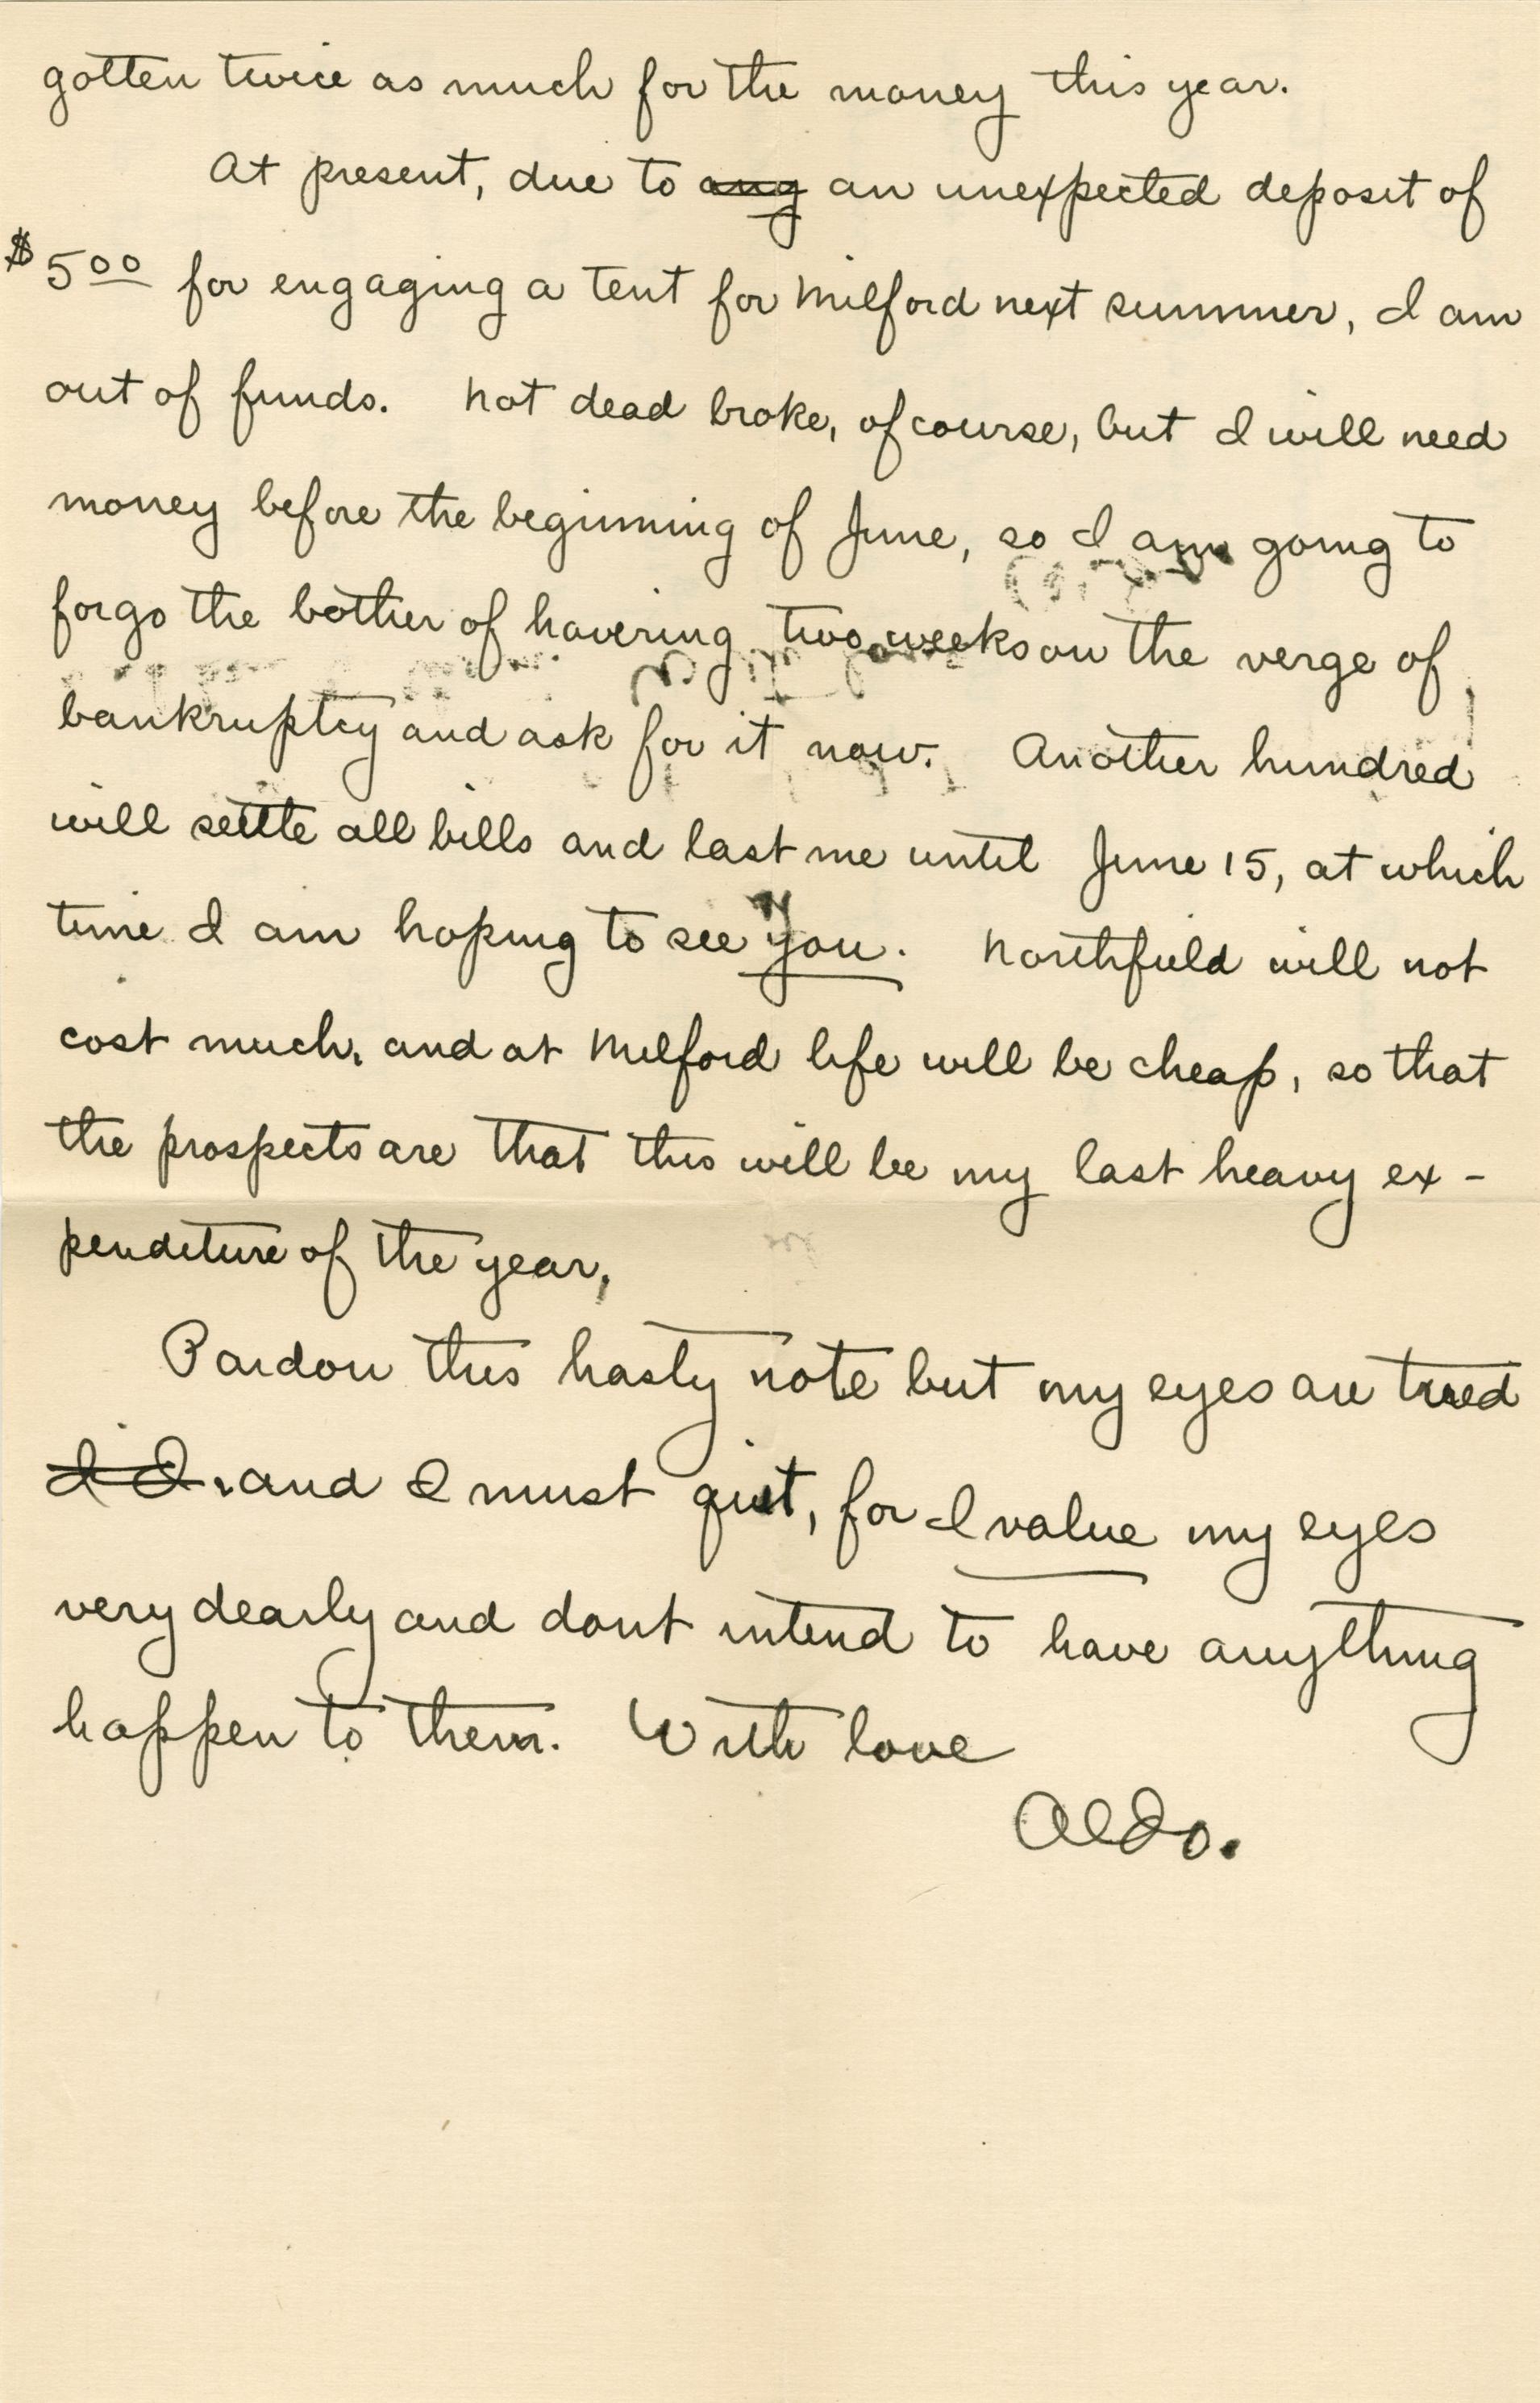 gotten twice as much for the money this year.
At present, due to ang an unexpected deposit of
$5.00 for engaging a tent for Milford next summer, I am
out of funds. Not dead broke, of course, but I will need
money before the beginning of June, so I am going to
forgo the bother of hovering two weeks on the verge of
bankruptcy and ask for it now. Another hundred
will settle all bills and last me until June 15, at which
time I am hoping to see you. Northfield will not
cost much, and at Milford life will be cheap, so that
the prospects are that this will be my last heavy ex-
penditure of the year,
Pardon this hasty note but my eyes are tired
I I and I must quit, for I value my eyes
very dearly and dont intend to have anything
happen to them. With love
Aldo.